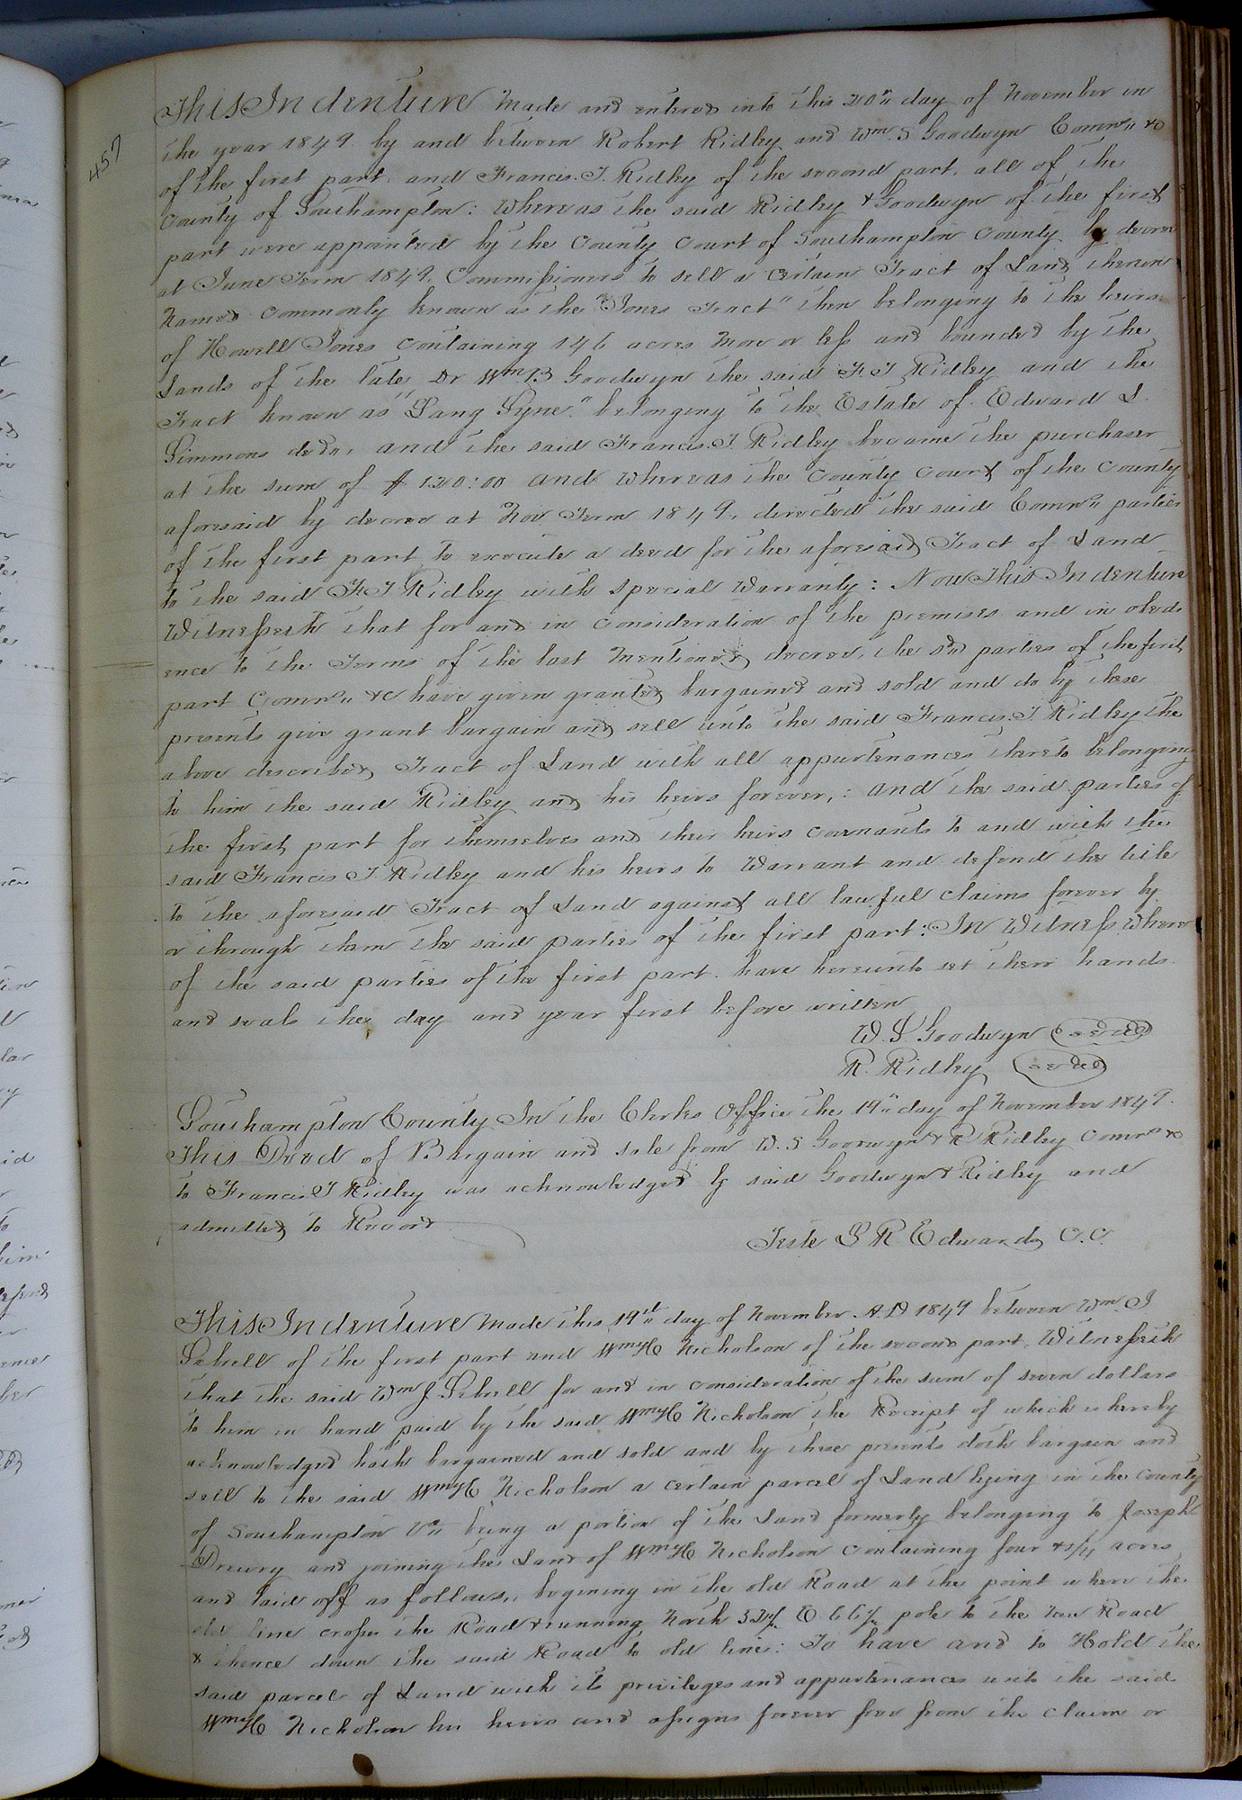 457
This Indenture Made and entered into this 20th day of November in
the year 1849 by and between Robert Ridley and Wm S Goodwyn Comrs &c
of the first part and Francis T. Ridley of the second part, all of the
County of Southampton: Whereas the said Ridley & Goodwyn of the first
part were appointed by the County Court of Southampton County by decree
at June Term 1849, Commissioners to sell a certain Tract of Land therein
Named commonly known as the "Jones Tract" then belonging to the heirs
of Howell Jones containing 146 acres More or less and bounded by the
Lands of the late Dr Wm B Goodwyn the said F. T Ridley and the
Tract known as "Lang Syne" belonging to the Estate of Edward S.
Simmons decd, and the said Francis T. Ridley became the purchaser
at the sum of $ 120:00 and Whereas the County Court of the County
aforesaid by decree at Nov Term 1849, directed the said Comrs parties
of the first part to execute a deed for the aforesaid Tract of Land
to the said F. T Ridley with special Warranty: Now This Indenture
Witnesseth that for and in consideration of the premises and in obedi
ence to the Terms of the last Mentioned decree, the sd parties of the first
part Comrs &c have given granted bargained and sold and do by these
presents give grant bargain and sell unto the said Francis T. Ridley the
above described Tract of Land with all appurtenances thereto belonging
to him the said Ridley and his heirs forever,: and the said parties of
the first part for themselves and their heirs covenants to and with the
said Francis T. Ridley and his heirs to Warrant and defend the title
to the aforesaid Tract of Land against all lawful claims forever by
or through them the said parties of the first part: In Witness Where
of the said parties of the first part have hereunto set their hands
and seals the day and year first before written
W. S Goodwyn (Seal)
R. Ridley (Seal)
Southampton County In the Clerks Office the 19th day of November 1849.
This Deed of Bargain and sale from W. S Goodwyn & R Ridley Comrs &c
to Francis T Ridley was acknowledged by said Goodwyn & Ridley and
admitted to Record
Teste L R Edwards C.C.
This Indenture Made this 19th day of November A.D 1849 between Wm J
Sebrell of the first part and Wm H Nicholson of the second part, Witnesseth
that the said Wm J. Sebrell for and in consideration of the sum of seven dollars
to him in hand paid by the said Wm H Nicholson the Receipt of which is hereby
acknowledged hath bargained and sold and by these presents doth bargain and
sell to the said Wm H Nicholson a certain parcel of Land lying in the County
of Southampton Va being a portion of the Land formerly belonging to Joseph
Drewry and joining the Land of Wm H Nicholson containing four & 1/4 acres
and laid off as follows, begining in the old Road at the point where the
old line crosses the Road & running North E pole to the New Road
& thence down the said Road to old line: To have and to Hold the
said parcel of Land with its privileges and appurtenances unto the said
Wm H Nicholson his heirs and assigns forever free from the claim or